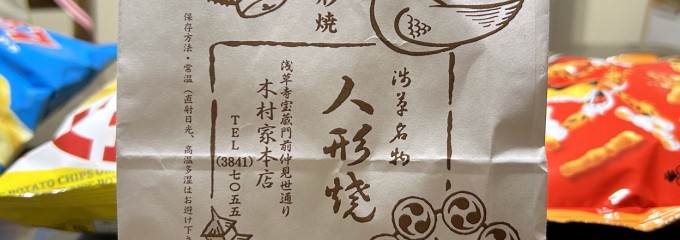 形焼
浅草名物
人形焼
浅草寺宝蔵門前仲見世通り
木村家本店
TEL
(3841)七〇五五
保存方法・常温(直射日光、高温多湿はお避け下さ
POTATO CHIPS